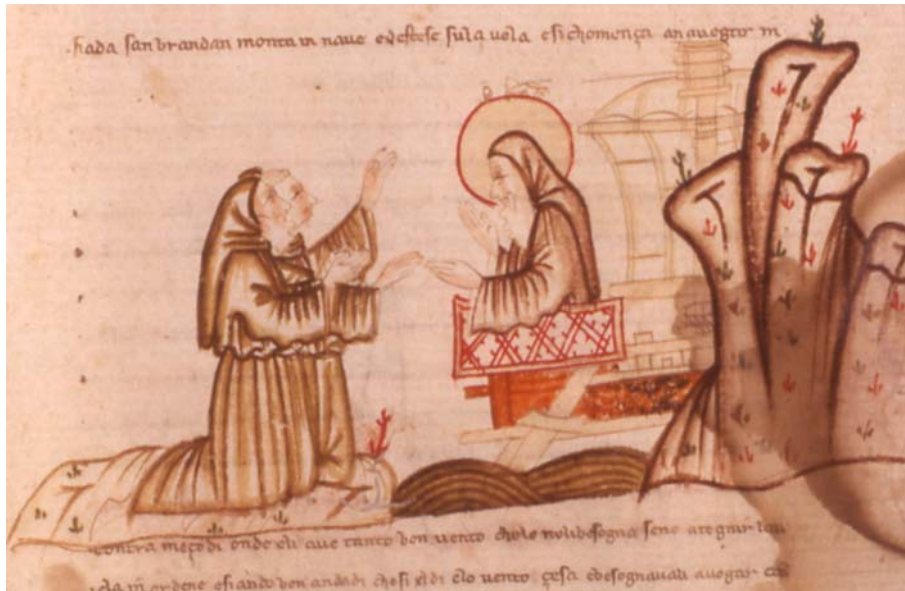 fiada san brandan monta in nave e destese su la vela e si chomença a navegar in
contra meço di onde eli ave tanto bon vento che lo no li besogna seno a tegnir la
vela in ordene e siando ben andadi chosi xl di e lo vento çesa e besognavali a vogar con